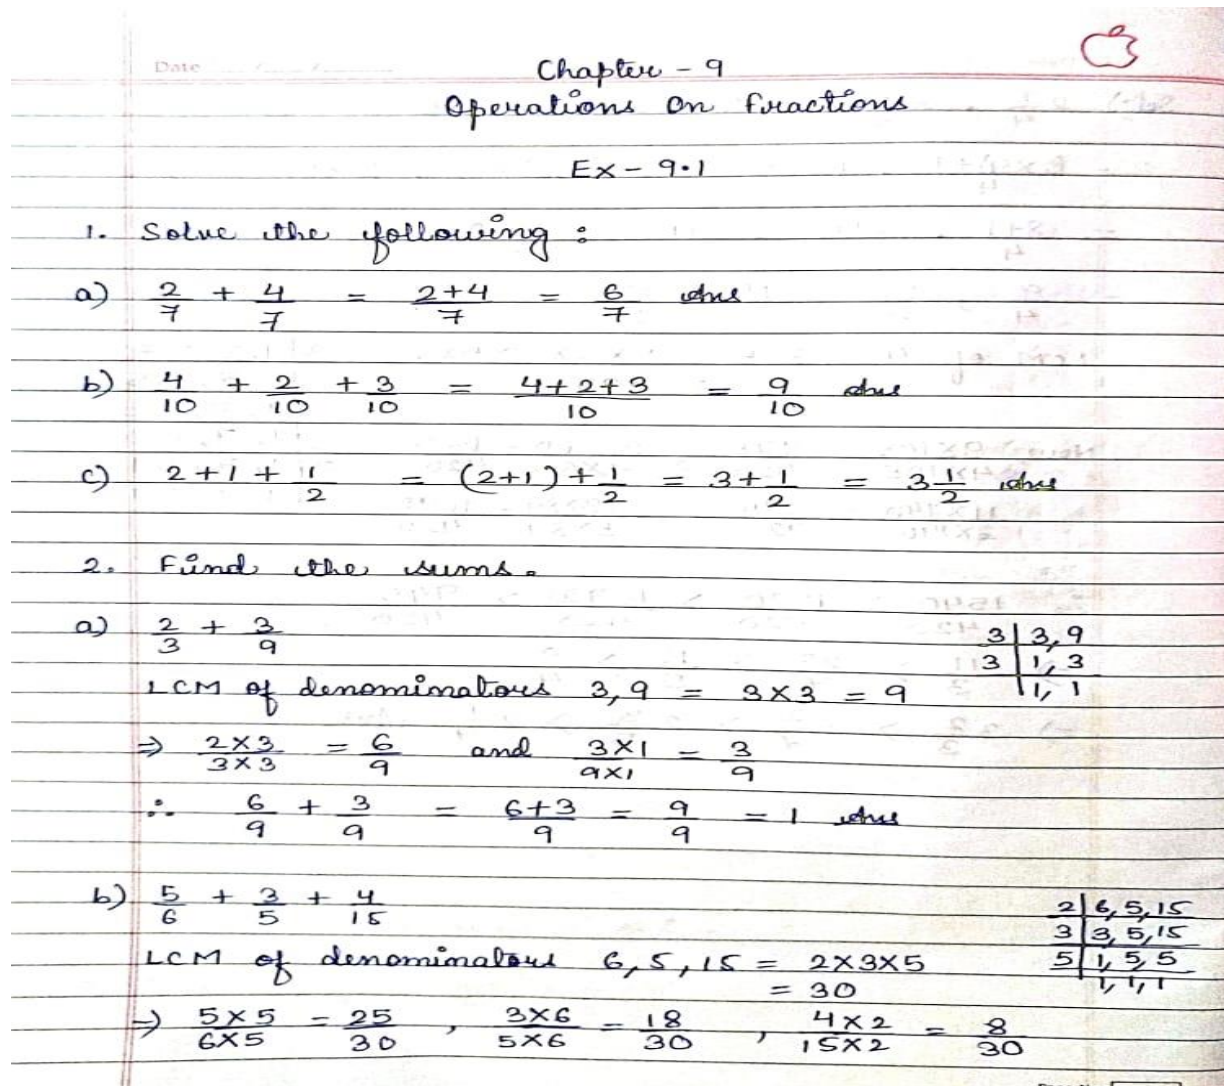 Date
Chapter - 9
Operations on fractions
Ex - 9.1
1. Solve the following :
a) 2/7 + 4/7 = 2+4/7 = 6/7 Ans
b) 4/10 + 2/10 + 3/10 = 4+2+3/10 = 9/10 Ans
c) 2+1+1/2 = (2+1)+1/2 = 3+1/2 = 3 1/2 Ans
2. Find the sums.
a) 2/3 + 3/9
3 | 3, 9
3 | 1, 3
| 1, 1
LCM of denominators 3, 9 = 3×3 = 9
⇒ 2×3/3×3 = 6/9 and 3×1/9×1 = 3/9
∴ 6/9 + 3/9 = 6+3/9 = 9/9 = 1 Ans
b) 5/6 + 3/5 + 4/15
2 | 6, 5, 15
3 | 3, 5, 15
5 | 1, 5, 5
1, 1, 1
LCM of denominators 6, 5, 15 = 2×3×5
= 30
⇒ 5×5/6×5 = 25/30 , 3×6/5×6 = 18/30 , 4×2/15×2 = 8/30